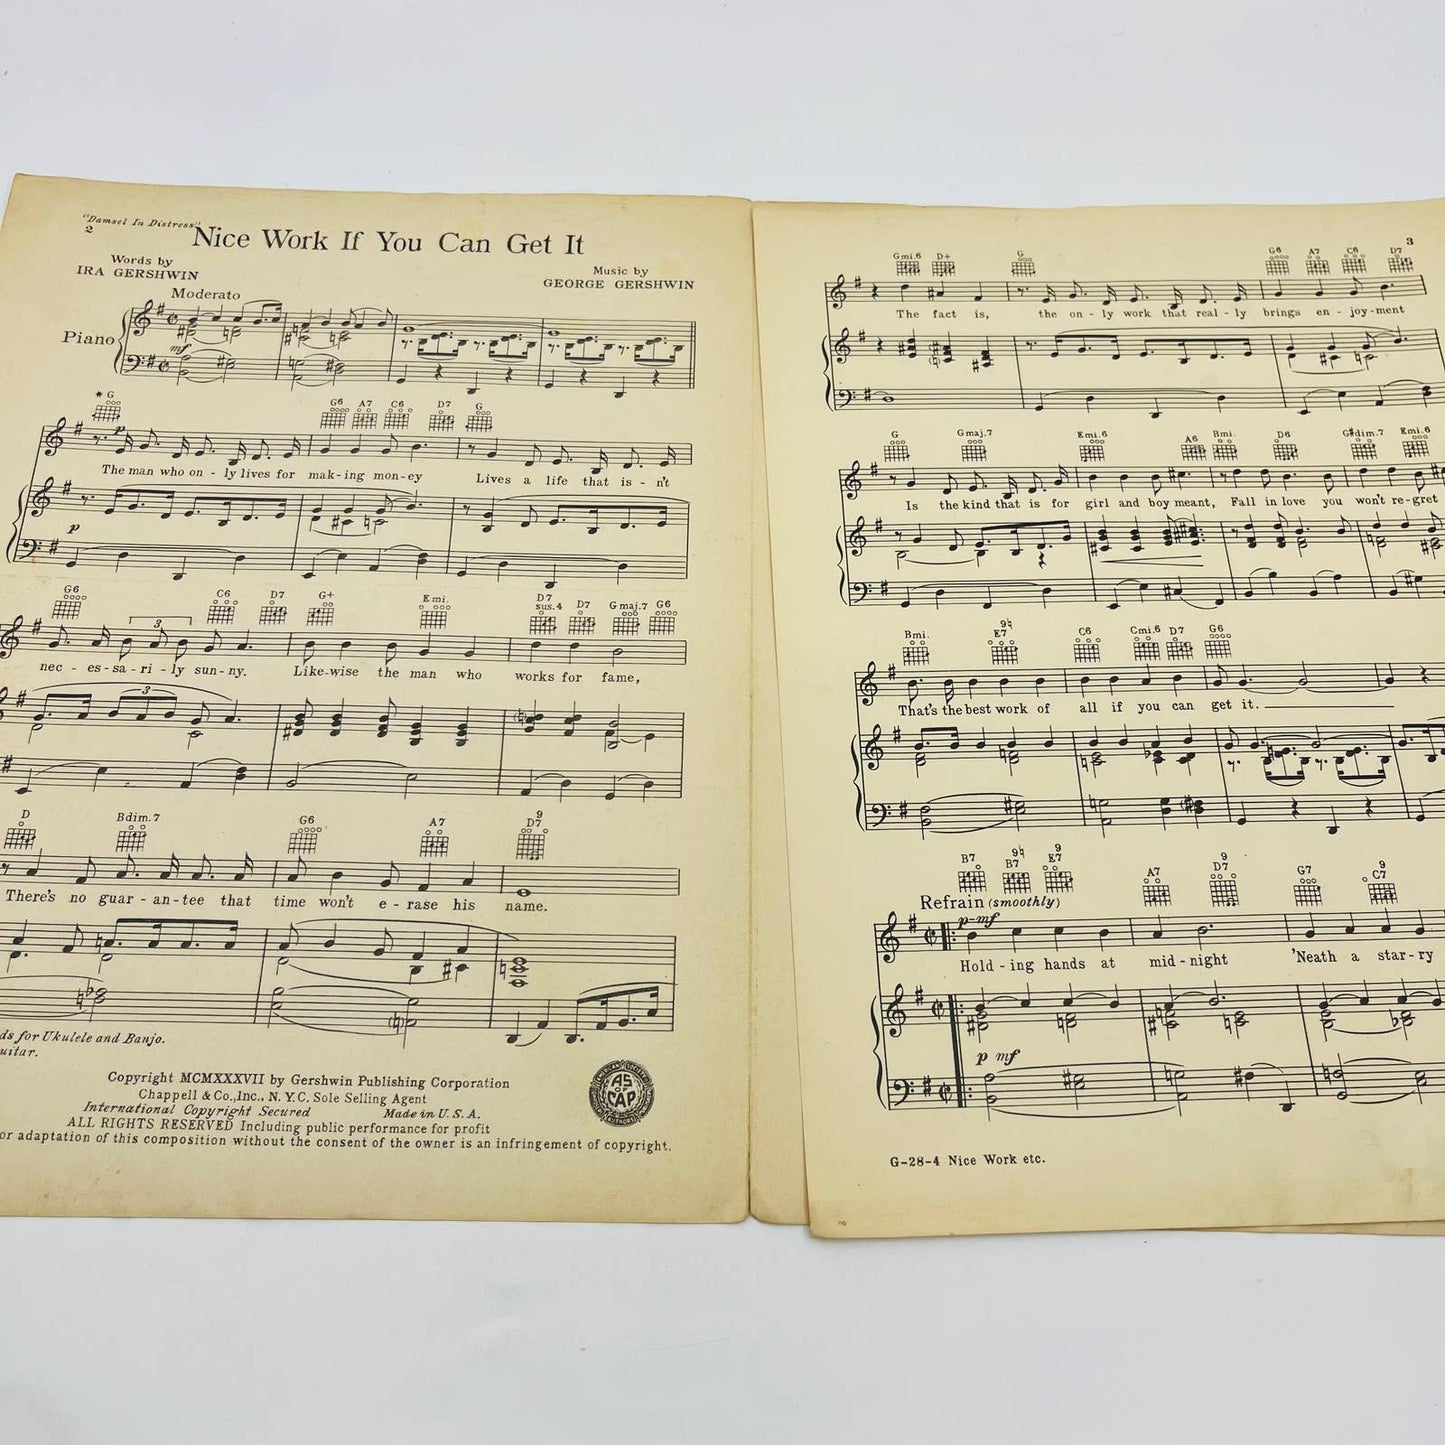 "Damsel In Distress"
2
Nice Work If You Can Get It
Words by
IRA GERSHWIN
Music by
GEORGE GERSHWIN
Moderato
Piano
mf
* G G6 A7 C6 D7 G
p
The man who on - ly lives for mak - ing mon - ey Lives a life that is - n't
p
G6 C6 D7 G+ E mi. D7 sus. 4 D7 G maj. 7 G6
3
nec - es - sa - ri - ly sun - ny. Like - wise the man who works for fame,
3
D B dim. 7 G6 A7 9 D7
There's no guar - an - tee that time won't e - rase his name.
ds for Ukulele and Banjo.
uitar.
Copyright MCMXXXVII by Gershwin Publishing Corporation
Chappell & Co., Inc., N.Y.C. Sole Selling Agent
International Copyright Secured Made in U.S.A.
ALL RIGHTS RESERVED Including public performance for profit
or adaptation of this composition without the consent of the owner is an infringement of copyright.
AS
OF
CAP
3
G mi. 6 D+ G G6 A7 C6 D7
The fact is, the on - ly work that real - ly brings en - joy - ment
G G maj. 7 E mi. 6 A6 B mi. D6 G#dim. 7 E mi. 6
Is the kind that is for girl and boy meant, Fall in love you won't re - gret
B mi. 9♮ E7 C6 C mi. 6 D7 G6
That's the best work of all if you can get it.
B7 9♮ B7 9 E7 A7 9 D7 G7 9 C7
Refrain (smoothly)
p-mf
Hold - ing hands at mid - night 'Neath a star - ry
p mf
G-28-4 Nice Work etc.